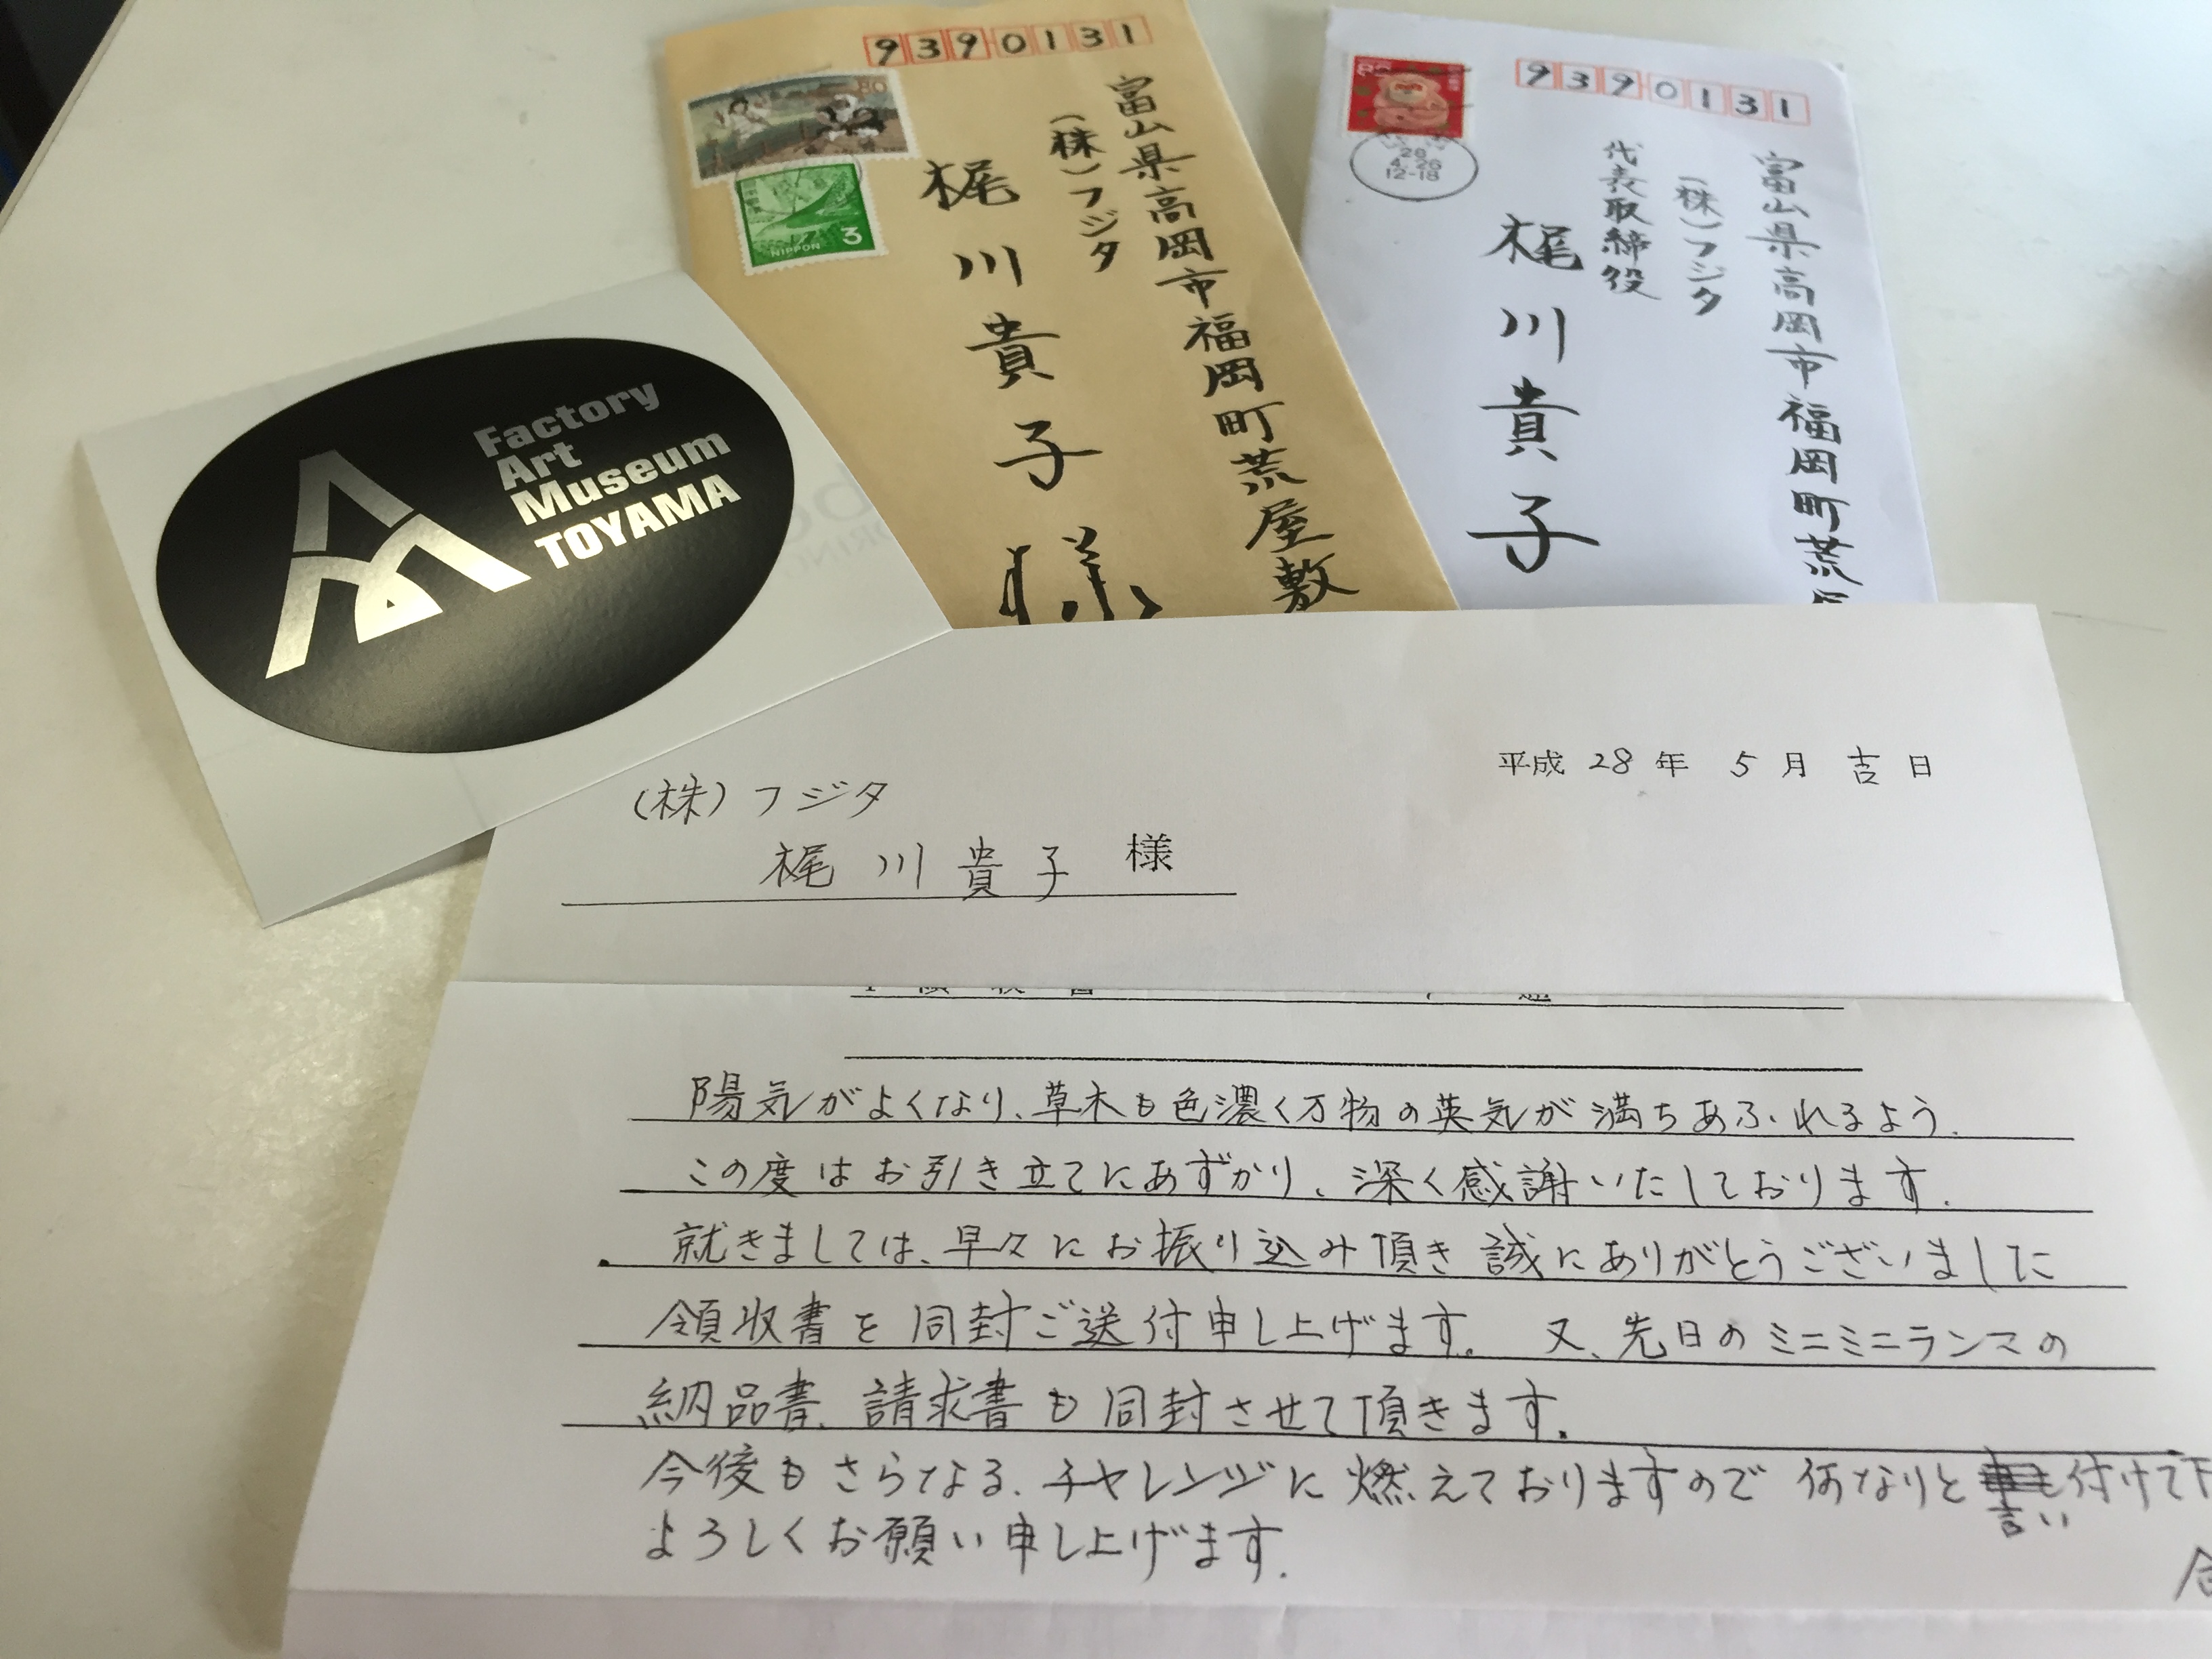 9390131
富山県高岡市福岡町荒屋敷
(株)フジタ
梶川貴子様
80
NIPPON 3
9390131
富山県高岡市福岡町荒
(株)フジタ
代表取締役
梶川貴子
28
4.26
12-18
Factory
Art
Museum
TOYAMA
平成 28 年 5 月 吉 日
(株)フジタ
梶川貴子 様
陽気がよくなり、草木も色濃く万物の英気が満ちあふれるよう.
この度はお引き立てにあずかり、深く感謝いたしております.
就きましては、早々にお振り込み頂き誠にありがとうございました
領収書を同封ご送付申し上げます。 又、先日のミニミニランマの
納品書、請求書も同封させて頂きます。
今後もさらなる、チャレンジに燃えておりますので何なりと言い付けて下
よろしくお願い申し上げます.